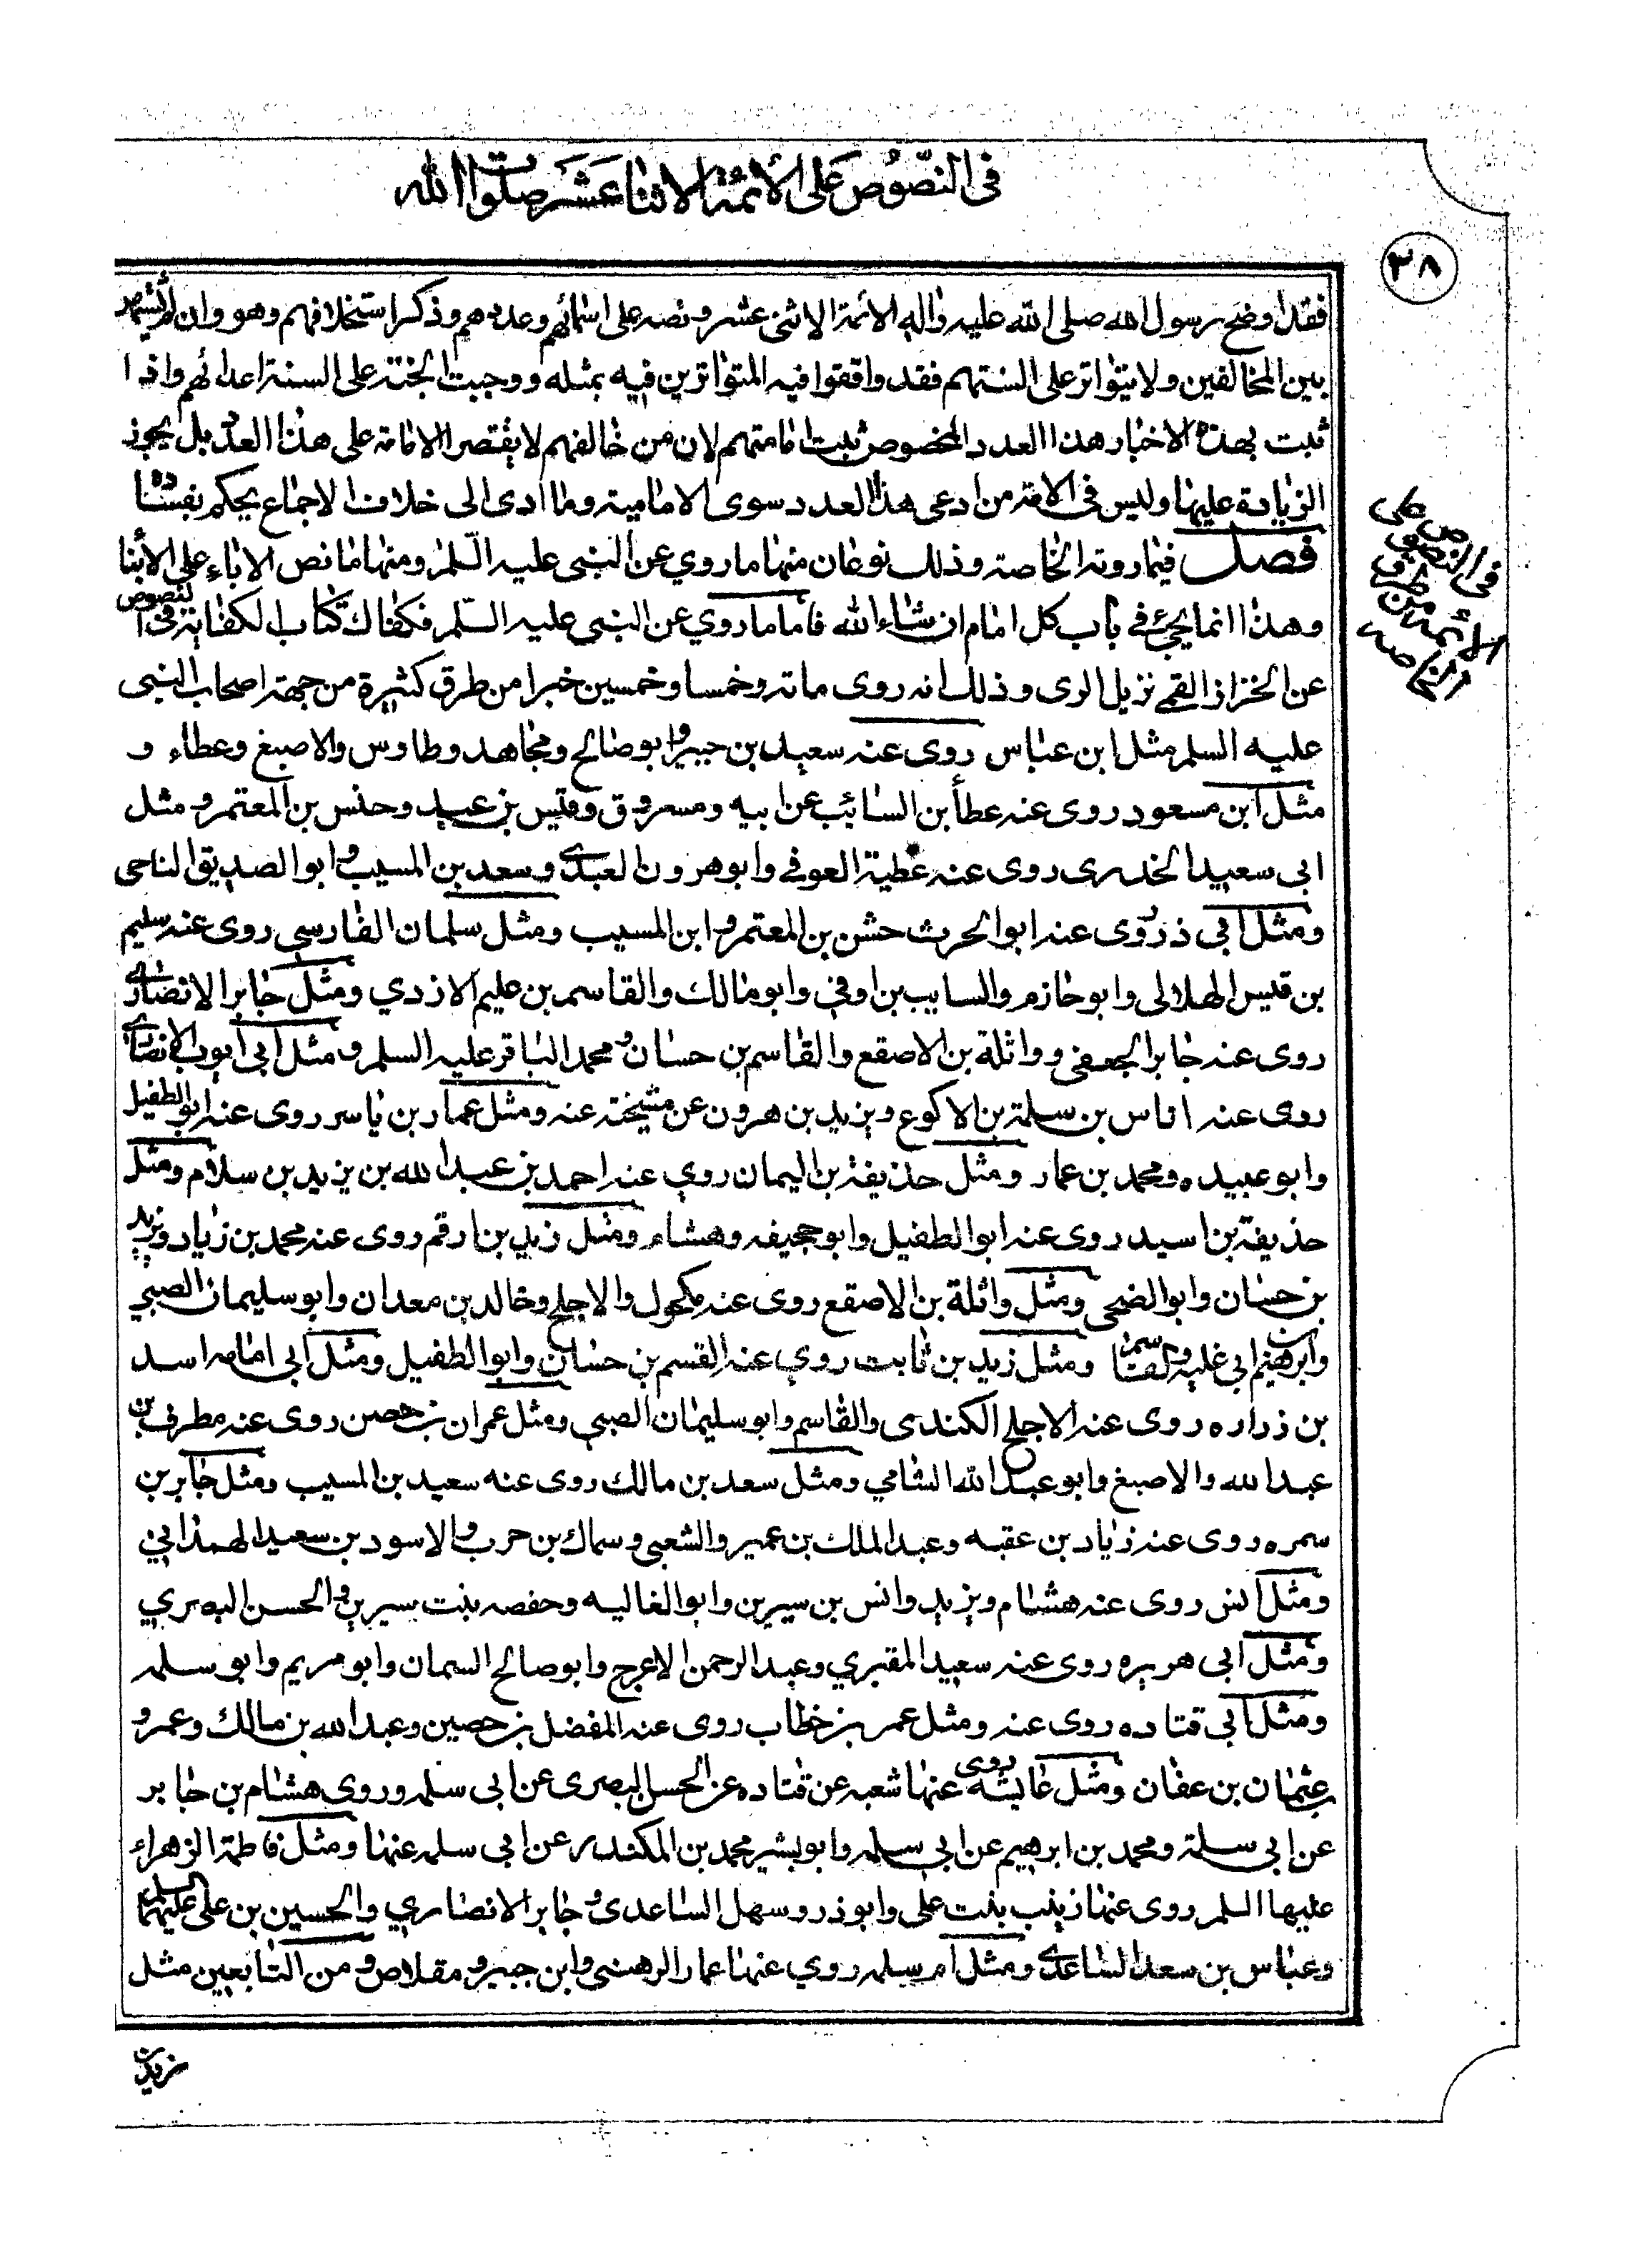 في النّصوص على الأئمّة الاثنا عَشَر صلوات الله
٣٨
فقد اوضح رسول الله صلى الله عليه واله الائمة الاثنى عشر ونصه على اسمائهم وعددهم وذكر استخلافهم وهو وان لم يشتهر
بين المخالفين ولا يتواتر على السنتهم فقد وافقوا فيه المتواترين فيه بمثله ووجبت الحجة على السنة اعدائهم واذا
ثبت بهذه الاخبار هذا العدد المخصوص ثبت امامتهم لان من خالفهم لا يقتصر الامامة على هذا العدد بل يجوز
الزيادة عليها وليس في الامة من ادعى هذا العدد سوى الامامية وما ادى الى خلاف الاجماع يحكم بفساده
فصل فيما روته الخاصة وذلك نوعان منها ما روي عن النبي عليه السّلم ومنها ما نص الاباء على الأبنا
وهذا انما يجئ في باب كل امام ان شاء الله فاما ما روي عن النبي عليه السّلم فكفاك كتاب الكفاية في النصوص
عن الخزاز القمي نزيل الرى وذلك انه روى مائة وخمسا وخمسين خبرا من طرق كثيرة من جهة اصحاب النبي
عليه السلم مثل ابن عباس روى عنه سعيد بن جبير وابو صالح ومجاهد وطاوس والاصبغ وعطاء و
مثل ابن مسعود روى عنه عطأ بن السائب عن ابيه ومسروق وقيس بن عبد وحنس بن المعتمر و مثل
ابي سعيد الخدرى روى عنه عطية العوفي وابو هرون العبدي وسعد بن المسيب وابو الصديق الناجى
ومثل ابي ذر روى عنه ابو الحرث حشن بن المعتمر وابن المسيب ومثل سلمان الفارسي روى عنه سليم
بن قيس الهلالى وابو حازم والسايب بن اوفى وابو مالك والقاسم بن عليم الازدي ومثل جابر الانصاري
روى عنه جابر الجعفى وواثلة بن الاصقع والقاسم بن حسان ومحمد الباقر عليه السلم و مثل ابي ايوب الانصاري
روى عنه اناس بن سلمة بن الاكوع ويزيد بن هرون عن مشيخته عنه ومثل عمار بن ياسر روى عنه ابو الطفيل
وابو عبيده ومحمد بن عمار ومثل حذيفة بن اليمان روي عنه احمد بن عبد الله بن يزيد بن سلام ومثل
حذيفة بن اسيد روى عنه ابو الطفيل وابو جحيفه وهشام ومثل زيد بن ارقم روى عنه محمد بن زياد ويزيد
بن حسان وابو الضحى ومثل واثلة بن الاصقع روى عنه مكحول والاجلح وخالد بن معدان وابو سليمان الضبي
وابرهيم بن ابي علية والقاسم ومثل زيد بن ثابت روي عنه القسم بن حسان وابو الطفيل ومثل ابي امامه اسد
بن زراره روى عنه الاجلح الكندى والقاسم وابو سليمان الضبي ومثل عمران بن حصين روى عنه مطرف بن
عبد الله والاصبغ وابو عبد الله الشامي ومثل سعد بن مالك روى عنه سعيد بن المسيب ومثل جابر بن
سمره روى عنه زياد بن عقبه وعبد الملك بن عمير والشعبي وسماك بن حرب والاسود بن سعيد الهمداني
ومثل انس روى عنه هشام ويزيد وانس بن سيرين وابو العاليه وحفصه بنت سيرين والحسن البصري
ومثل ابي هريره روى عنه سعيد المقبري وعبد الرحمن الاعرج وابو صالح السمان وابو مريم وابو سلمه
ومثل ابي قتاده روى عنه ومثل عمر بن خطاب روى عنه المفضل بن حصين وعبد الله بن مالك وعمر و
عثمان بن عفان ومثل عايشه روى عنها شعبه عن قتاده عن الحسن البصرى عن ابي سلمه وروي هشام بن جابر
عن ابي سلمة ومحمد بن ابرهيم عن ابي سلمه وابو بشير محمد بن المكندر عن ابي سلمه عنها ومثل فاطمة الزهراء
عليها السلم روى عنها زينب بنت علي وابو ذر وسهل الساعدى و جابر الانصاري والحسين بن علي عليهما السلم
وعباس بن سعد الساعدي ومثل ام سلمه روي عنها عمار الرهنى وابن جبير و مقلاص و من التابعين مثل
في النصوص على
الائمة من طرق
الخاصه